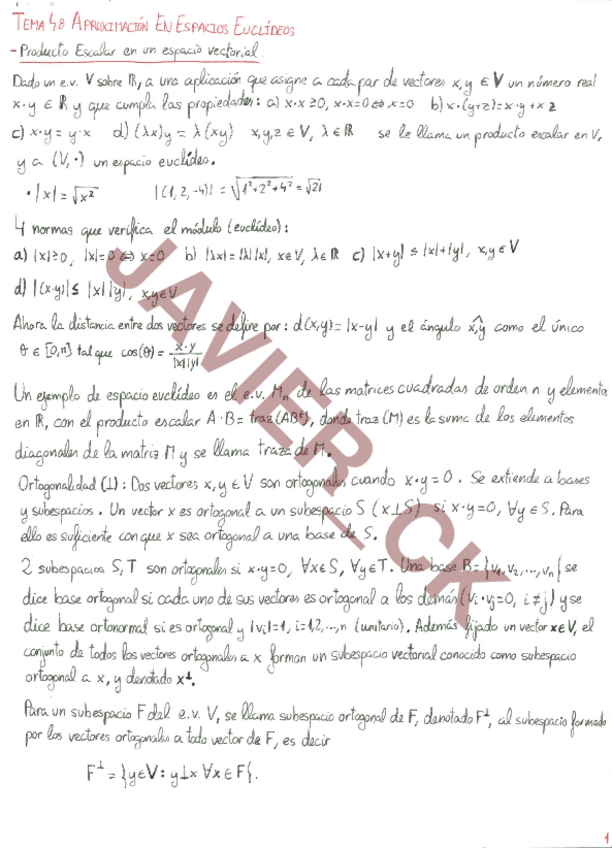 TEMA 48 APROXIMACIÓN EN ESPACIOS EUCLÍDEOS
- Producto Escalar en un espacio vectorial.
Dado un e.v. V sobre ℝ, a una aplicación que asigne a cada par de vectores x,y ∈ V un número real
x·y ∈ ℝ y que cumpla las propiedades: a) x·x ≥ 0, x·x=0 ⇔ x=0 b) x·(y+z)=x·y+x z
c) x·y = y·x d) (λx)y = λ(xy) x,y,z ∈ V, λ ∈ ℝ se le llama un producto escalar en V,
y a (V,·) un espacio euclídeo.
· |x| = √x² |(1,2,-4)| = √1²+2²+4² = √21
4 normas que verifica el módulo (euclídeo):
a) |x| ≥ 0, |x|=0 ⇔ x=0 b) |λx|=|λ||x|, x∈V, λ∈ℝ c) |x+y| ≤ |x|+|y|, x,y ∈ V
d) |(x·y)| ≤ |x||y|, x,y ∈ V
Ahora la distancia entre dos vectores se define por: d(x,y)=|x-y| y el ángulo x̂,y como el único
θ ∈ [0,π] tal que cos(θ) = x·y / |x||y|
Un ejemplo de espacio euclídeo es el e.v. Mₙ de las matrices cuadradas de orden n y elementos
en ℝ, con el producto escalar A·B = traz(ABᵗ), donde traz(M) es la suma de los elementos
diagonales de la matriz M y se llama traza de M.
Ortogonalidad (⊥): Dos vectores x,y ∈ V son ortogonales cuando x·y=0. Se extiende a bases
y subespacios. Un vector x es ortogonal a un subespacio S (x⊥S) si x·y=0, ∀y ∈ S. Para
ello es suficiente con que x sea ortogonal a una base de S.
2 subespacios S,T son ortogonales si x·y=0, ∀x∈S, ∀y∈T. Una base B={v₁,v₂,...,vₙ} se
dice base ortogonal si cada uno de sus vectores es ortogonal a los demás (vᵢ·vⱼ=0, i≠j) y se
dice base ortonormal si es ortogonal y |vᵢ|=1, i=1,2,...,n (unitario). Además fijado un vector x∈V, el
conjunto de todos los vectores ortogonales a x forman un subespacio vectorial conocido como subespacio
ortogonal a x, y denotado x⊥.
Para un subespacio F del e.v. V, se llama subespacio ortogonal de F, denotado F⊥, al subespacio formado
por los vectores ortogonales a todo vector de F, es decir
F⊥ = {y∈V: y⊥x ∀x∈F}.
JAVIER_CK
1